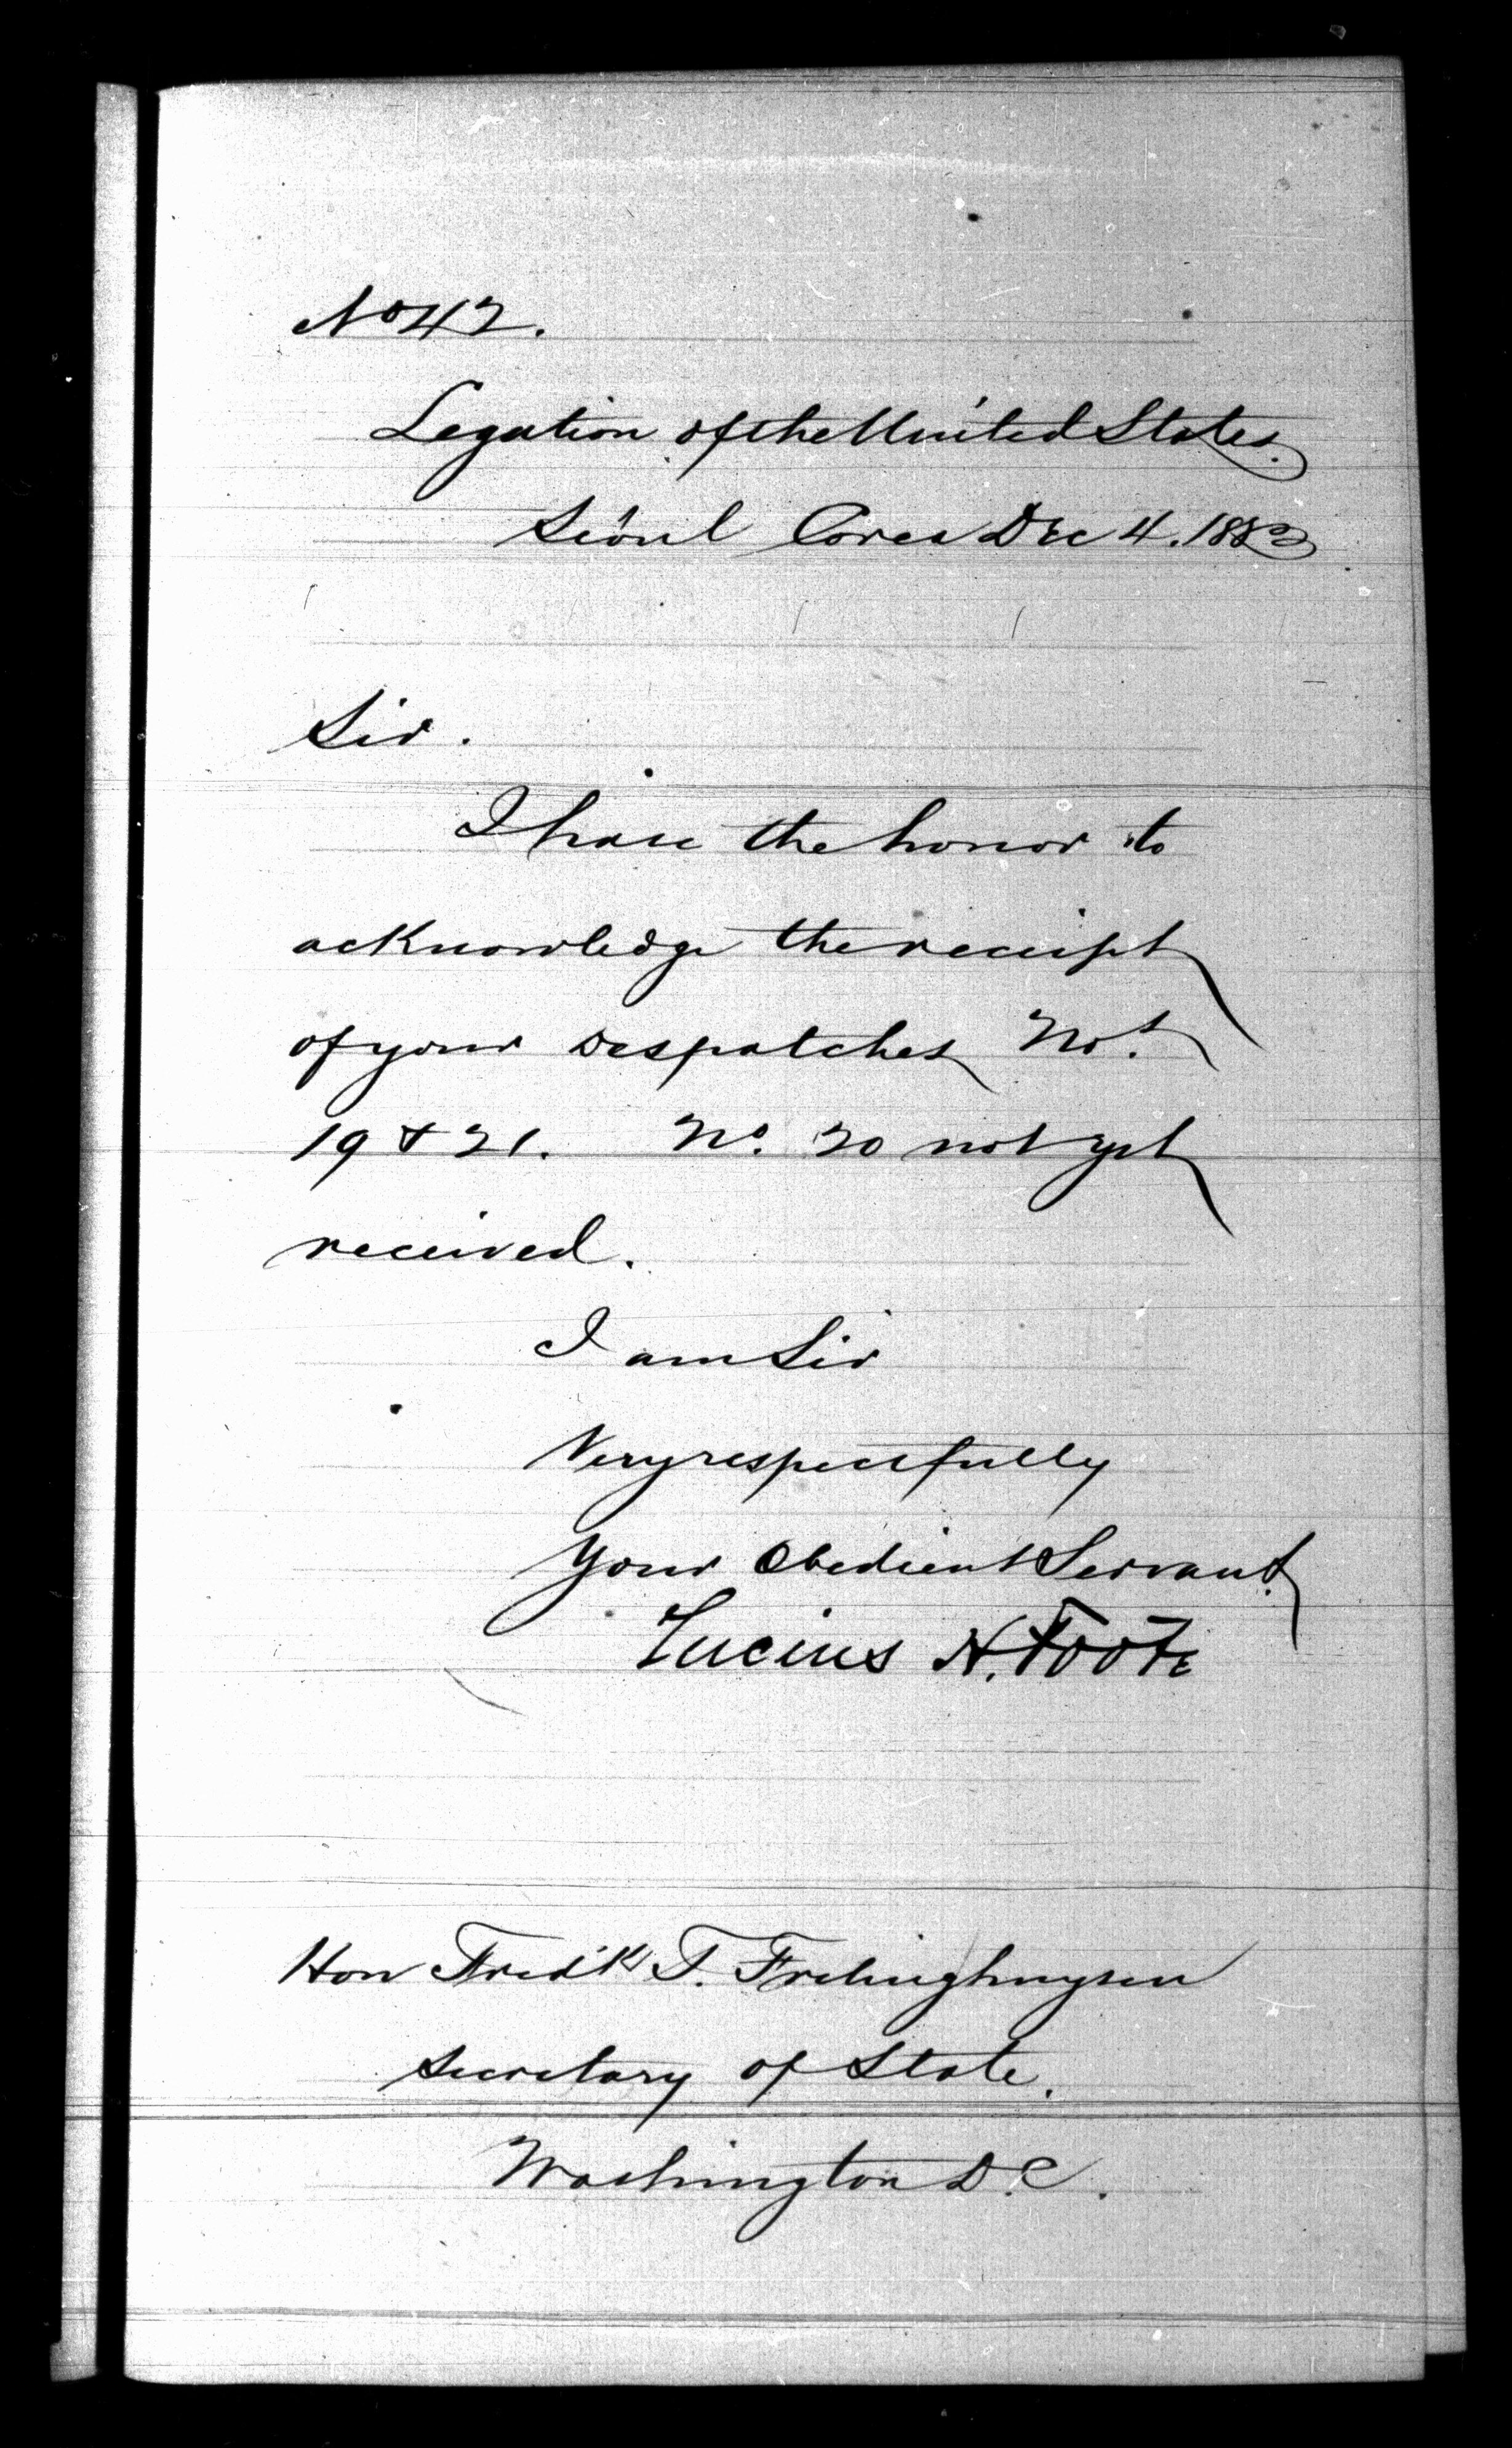 No 42.
Legation of the United States.
Seóul Corea Dec 4. 1883
Sir.
I have the honor to
acknowledge the receipt
of your despatches Nos.
19 & 21. No. 20 not yet
received.
I am Sir
Very respectfully
Your Obedient Servant.
Lucius H. Foote
Hon Fredk T. Frelinghuysen
Secretary of State.
Washington D.C.